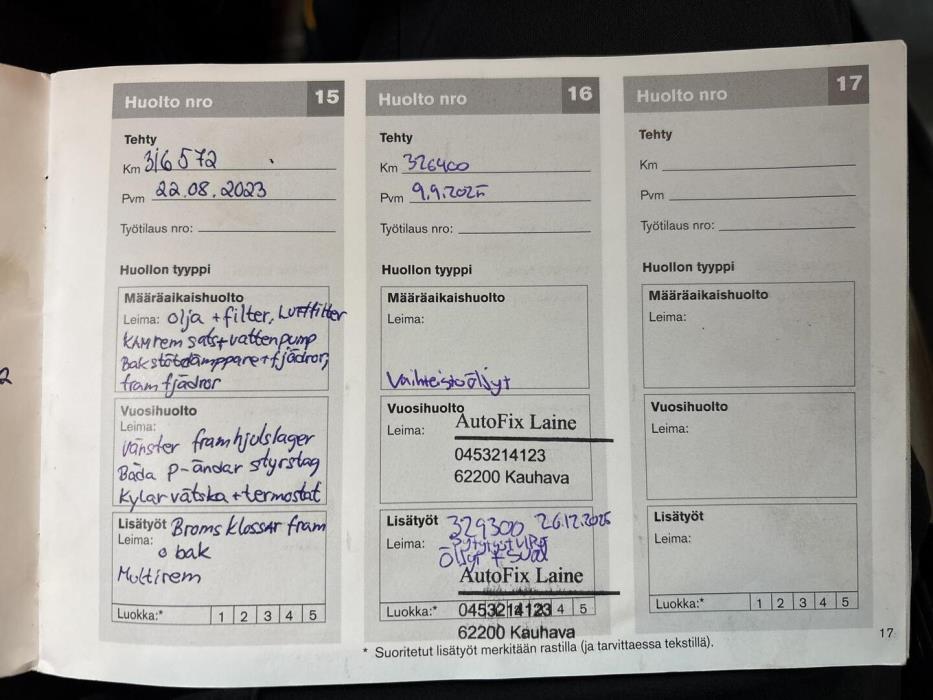 Huolto nro 15
Tehty
Km 316572
Pvm 22.08.2023
Työtilaus nro:
Huollon tyyppi
Määräaikaishuolto
Leima: olja + filter, Luftfilter
KAMrem sats+vattenpump
Bakstötdämppare+fjädror,
fram fjädror
Vuosihuolto
Leima:
Vänster framhjulslager
Båda P-ändar styrstag
Kylarvätska + termostat
Lisätyöt Broms klossar fram
Leima: o bak
Multirem
Luokka:* 1 2 3 4 5
Huolto nro 16
Tehty
Km 326400
Pvm 9.9.2025
Työtilaus nro:
Huollon tyyppi
Määräaikaishuolto
Leima:
Vaihteistoöljyt
Vuosihuolto
AutoFix Laine
Leima:
0453214123
62200 Kauhava
Lisätyöt 329300 26.12.2025
Leima:
Öljyt + suod
AutoFix Laine
Luokka:* 0453214123 4 5
62200 Kauhava
Huolto nro 17
Tehty
Km
Pvm
Työtilaus nro:
Huollon tyyppi
Määräaikaishuolto
Leima:
Vuosihuolto
Leima:
Lisätyöt
Leima:
Luokka:* 1 2 3 4 5
* Suoritetut lisätyöt merkitään rastilla (ja tarvittaessa tekstillä).
17
2